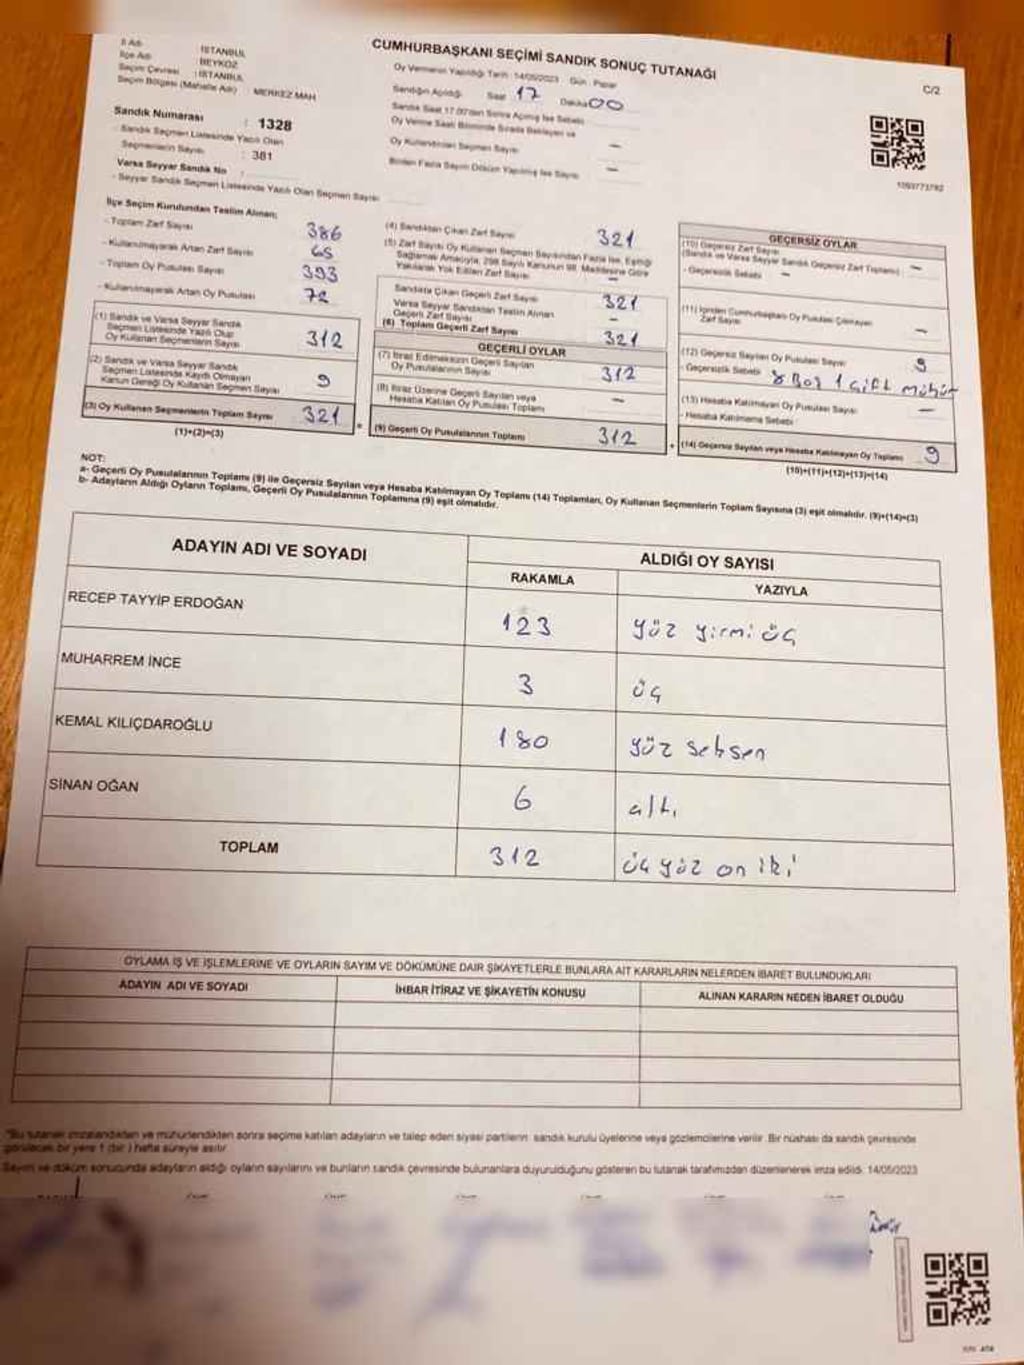 CUMHURBAŞKANI SEÇİMİ SANDIK SONUÇ TUTANAĞI
C/2
İl Adı : İSTANBUL
İlçe Adı : BEYKOZ
Seçim Çevresi : İSTANBUL
Seçim Bölgesi (Mahalle Adı) : MERKEZ MAH
Oy Vermenin Yapıldığı Tarih: 14/05/2023 Gün: Pazar
Sandığın Açıldığı Saat 17 Dakika 00
Sandık Saat 17.00'den Sonra Açılmış İse Sebebi
Oy Verme Saati Bitiminde Sırada Bekleyen ve
Oy Kullandırılan Seçmen Sayısı —
Birden Fazla Sayım Döküm Yapılmış İse Sayısı —
Sandık Numarası : 1328
- Sandık Seçmen Listesinde Yazılı Olan
Seçmenlerin Sayısı : 381
Varsa Seyyar Sandık No :
- Seyyar Sandık Seçmen Listesinde Yazılı Olan Seçmen Sayısı
1093773792
İlçe Seçim Kurulundan Teslim Alınan;
- Toplam Zarf Sayısı 386
- Kullanılmayarak Artan Zarf Sayısı 65
- Toplam Oy Pusulası Sayısı 393
- Kullanılmayarak Artan Oy Pusulası 72
(1) Sandık ve Varsa Seyyar Sandık
Seçmen Listesinde Yazılı Olup
Oy Kullanan Seçmenlerin Sayısı 312
(2) Sandık ve Varsa Seyyar Sandık
Seçmen Listesinde Kaydı Olmayan
Kanun Gereği Oy Kullanan Seçmen Sayısı 9
(3) Oy Kullanan Seçmenlerin Toplam Sayısı 321
(1)+(2)=(3)
(4) Sandıktan Çıkan Zarf Sayısı 321
(5) Zarf Sayısı Oy Kullanan Seçmen Sayısından Fazla İse, Eşitliği
Sağlamak Amacıyla, 298 Sayılı Kanunun 98. Maddesine Göre
Yakılarak Yok Edilen Zarf Sayısı —
Sandıkta Çıkan Geçerli Zarf Sayısı 321
Varsa Seyyar Sandıktan Teslim Alınan
Geçerli Zarf Sayısı —
(6) Toplam Geçerli Zarf Sayısı 321
GEÇERLİ OYLAR
(7) İtiraz Edilmeksizin Geçerli Sayılan
Oy Pusulalarının Sayısı 312
(8) İtiraz Üzerine Geçerli Sayılan veya
Hesaba Katılan Oy Pusulası Toplamı —
(9) Geçerli Oy Pusulalarının Toplamı 312
GEÇERSİZ OYLAR
(10) Geçersiz Zarf Sayısı
(Sandık ve Varsa Seyyar Sandık Geçersiz Zarf Toplamı) —
- Geçersizlik Sebebi —
(11) İçinden Cumhurbaşkanı Oy Pusulası Çıkmayan
Zarf Sayısı —
(12) Geçersiz Sayılan Oy Pusulası Sayısı 9
- Geçersizlik Sebebi 8 Boş 1 çift mühür
(13) Hesaba Katılmayan Oy Pusulası Sayısı —
- Hesaba Katılmama Sebebi
(14) Geçersiz Sayılan veya Hesaba Katılmayan Oy Toplamı 9
(10)+(11)+(12)+(13)=(14)
NOT:
a- Geçerli Oy Pusulalarının Toplamı (9) ile Geçersiz Sayılan veya Hesaba Katılmayan Oy Toplamı (14) Toplamları, Oy Kullanan Seçmenlerin Toplam Sayısına (3) eşit olmalıdır. (9)+(14)=(3)
b- Adayların Aldığı Oyların Toplamı, Geçerli Oy Pusulalarının Toplamına (9) eşit olmalıdır.
ADAYIN ADI VE SOYADI
ALDIĞI OY SAYISI
RAKAMLA YAZIYLA
RECEP TAYYİP ERDOĞAN 123 yüz yirmi üç
MUHARREM İNCE 3 üç
KEMAL KILIÇDAROĞLU 180 yüz seksen
SİNAN OĞAN 6 altı
TOPLAM 312 üç yüz on iki
OYLAMA İŞ VE İŞLEMLERİNE VE OYLARIN SAYIM VE DÖKÜMÜNE DAİR ŞİKAYETLERLE BUNLARA AİT KARARLARIN NELERDEN İBARET BULUNDUKLARI
ADAYIN ADI VE SOYADI İHBAR İTİRAZ VE ŞİKAYETİN KONUSU ALINAN KARARIN NEDEN İBARET OLDUĞU
"Bu tutanak imzalandıktan ve mühürlendikten sonra seçime katılan adayların ve talep eden siyasi partilerin sandık kurulu üyelerine veya gözlemcilerine verilir. Bir nüshası da sandık çevresinde
görülecek bir yere 1 (bir) hafta süreyle asılır
Sayım ve döküm sonucunda adayların aldığı oyların sayılarını ve bunların sandık çevresinde bulunanlara duyurulduğunu gösteren bu tutanak tarafımızdan düzenlenerek imza edildi. 14/05/2023